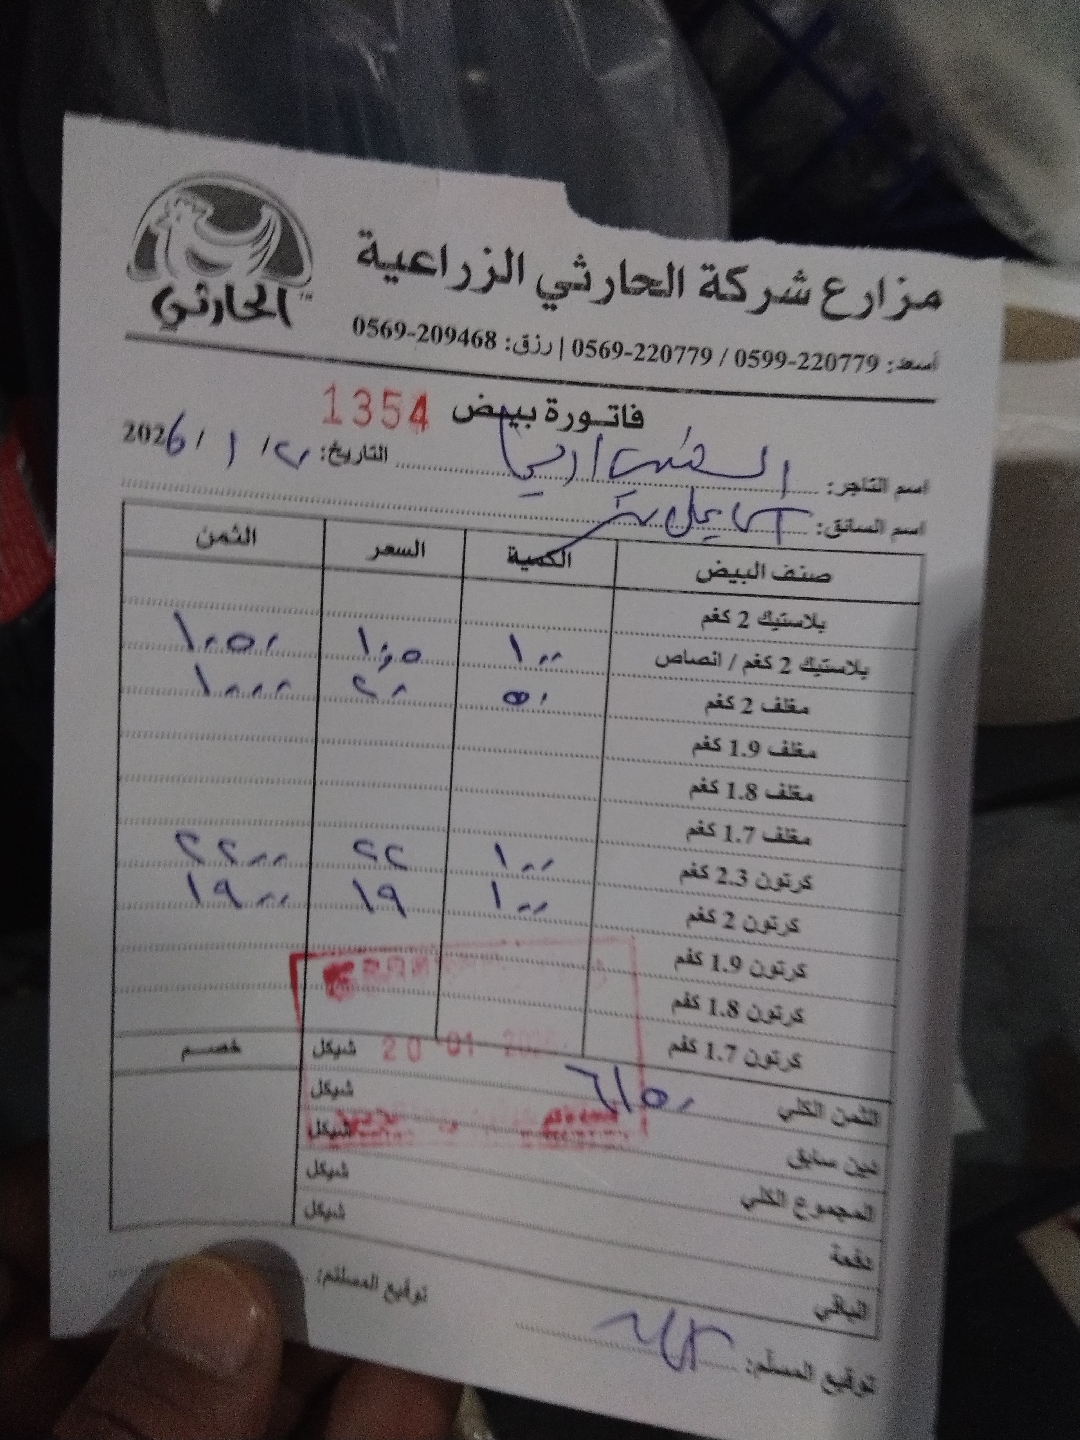 الحارثي
مزارع شركة الحارثي الزراعية
أسعد: 0599-220779 / 0569-220779 | رزق: 0569-209468
فاتورة بيض 1354
اسم التاجر: التاريخ: ٢٠ / ١ / 2026
اسم السائق:
صنف البيض الكمية السعر الثمن
بلاستيك 2 كغم
بلاستيك 2 كغم / انصاص ١٠٠ ١٠,٥ ١٠٥٠
مغلف 2 كغم ٥٠ ٢٠ ١٠٠٠
مغلف 1.9 كغم
مغلف 1.8 كغم
مغلف 1.7 كغم
كرتون 2.3 كغم ١٠٠ ٢٢ ٢٢٠٠
كرتون 2 كغم ١٠٠ ١٩ ١٩٠٠
كرتون 1.9 كغم
كرتون 1.8 كغم
كرتون 1.7 كغم
الثمن الكلي ٦١٥٠ شيكل خصم
دين سابق شيكل
المجموع الكلي شيكل
دفعة شيكل
الباقي شيكل
20 01 2026
توقيع المسلّم: توقيع المستلم: